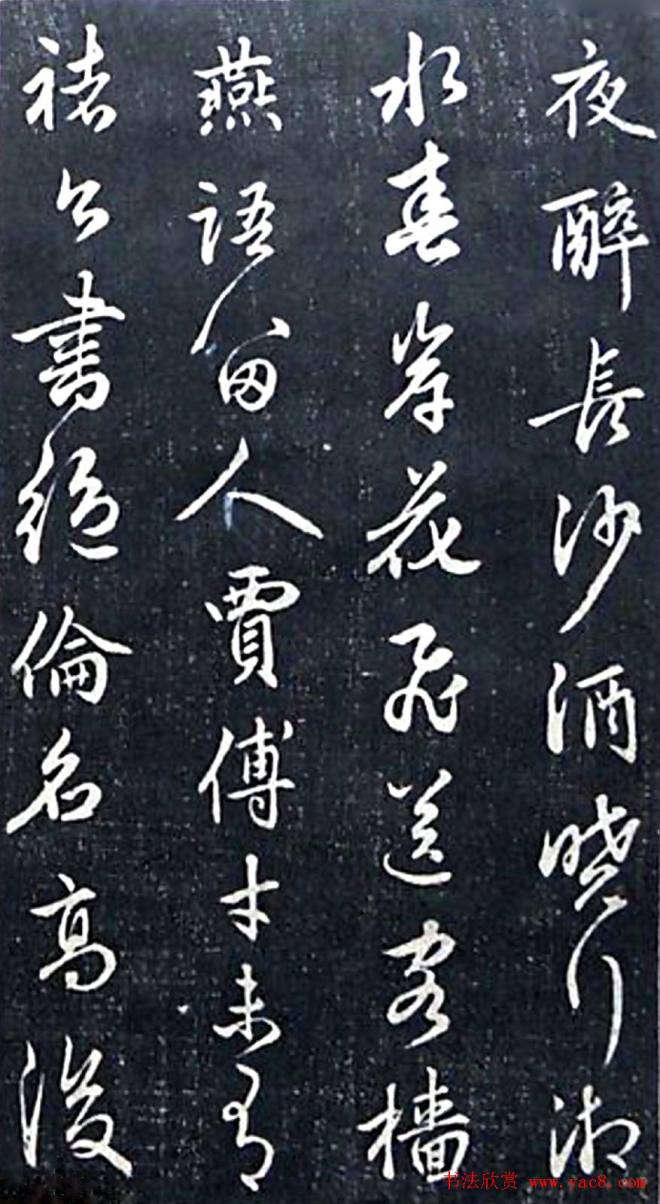 夜醉長沙酒曉行湘
水春岸花飛送客檣
燕語留人賈傅才未有
褚公書絕倫名高後
书法欣赏 www.yac8.com